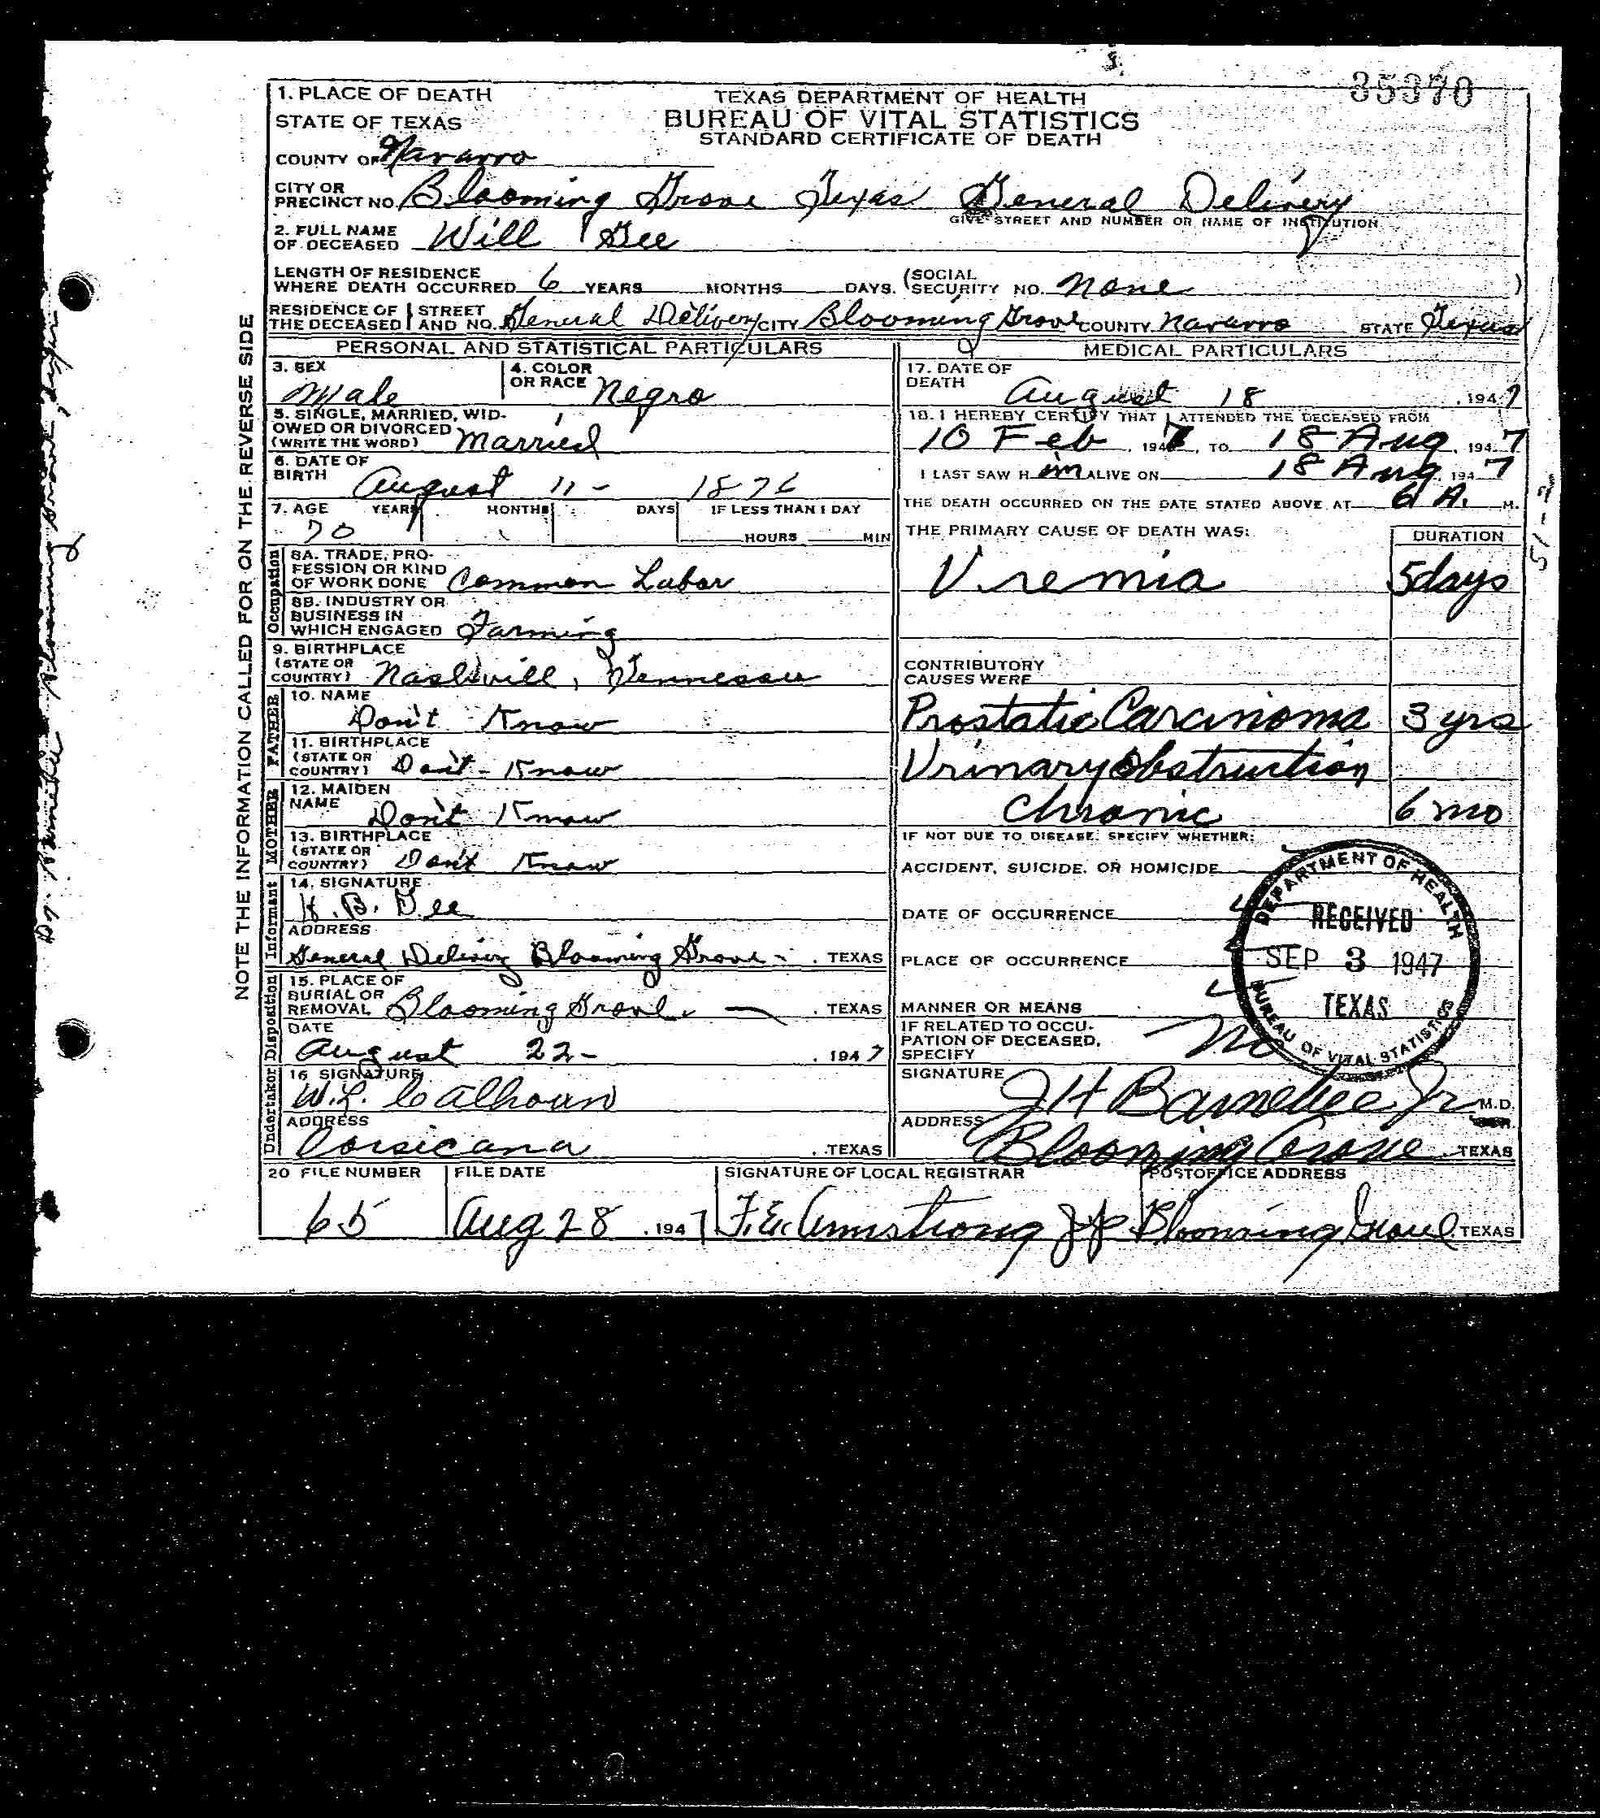 35370
1. PLACE OF DEATH
STATE OF TEXAS
TEXAS DEPARTMENT OF HEALTH
BUREAU OF VITAL STATISTICS
STANDARD CERTIFICATE OF DEATH
COUNTY OF Navarro
CITY OR PRECINCT NO. Blooming Grove Texas General Delivery
GIVE STREET AND NUMBER OR NAME OF INSTITUTION
2. FULL NAME OF DECEASED Will Gee
LENGTH OF RESIDENCE WHERE DEATH OCCURRED 6 YEARS MONTHS DAYS. (SOCIAL SECURITY NO. None )
RESIDENCE OF THE DECEASED STREET AND NO. General Delivery CITY Blooming Grove COUNTY Navarro STATE Texas
PERSONAL AND STATISTICAL PARTICULARS
3. SEX Male
4. COLOR OR RACE Negro
5. SINGLE, MARRIED, WIDOWED OR DIVORCED (WRITE THE WORD) Married
6. DATE OF BIRTH August 11- 1876
7. AGE YEARS MONTHS DAYS IF LESS THAN 1 DAY
70 HOURS MIN
Occupation
8A. TRADE, PROFESSION OR KIND OF WORK DONE Common Labor
8B. INDUSTRY OR BUSINESS IN WHICH ENGAGED Farming
9. BIRTHPLACE (STATE OR COUNTRY) Nashvill, Tennessee
FATHER
10. NAME Don't Know
11. BIRTHPLACE (STATE OR COUNTRY) Don't - Know
MOTHER
12. MAIDEN NAME Don't Know
13. BIRTHPLACE (STATE OR COUNTRY) Don't Know
Informant
14. SIGNATURE H. B. Gee
ADDRESS
General Delivery Blooming Grove - , TEXAS
Disposition
15. PLACE OF BURIAL OR REMOVAL Blooming Grove. , TEXAS
DATE
August 22- , 1947
Undertaker
16 SIGNATURE
W.L. Calhoun
ADDRESS
Corsicana , TEXAS
MEDICAL PARTICULARS
17. DATE OF DEATH August 18 , 1947
18. I HEREBY CERTIFY THAT I ATTENDED THE DECEASED FROM
10 Feb , 1947, TO 18 Aug , 1947
I LAST SAW H im ALIVE ON 18 Aug 1947
THE DEATH OCCURRED ON THE DATE STATED ABOVE AT 6 A. M.
THE PRIMARY CAUSE OF DEATH WAS: DURATION
Uremia 5 days
CONTRIBUTORY CAUSES WERE
Prostatic Carcinoma 3 yrs
Urinary Obstruction
Chronic 6 mo
IF NOT DUE TO DISEASE, SPECIFY WHETHER:
ACCIDENT, SUICIDE, OR HOMICIDE
DATE OF OCCURRENCE
PLACE OF OCCURRENCE
MANNER OR MEANS
IF RELATED TO OCCUPATION OF DECEASED, SPECIFY No
DEPARTMENT OF HEALTH
RECEIVED
SEP 3 1947
TEXAS
BUREAU OF VITAL STATISTICS
SIGNATURE J H Barnebee Jr. M.D.
ADDRESS Blooming Grove TEXAS
20 FILE NUMBER FILE DATE SIGNATURE OF LOCAL REGISTRAR POSTOFFICE ADDRESS
65 Aug 28 , 1947 F. E. Armstrong JP Blooming Grove TEXAS
NOTE THE INFORMATION CALLED FOR ON THE REVERSE SIDE